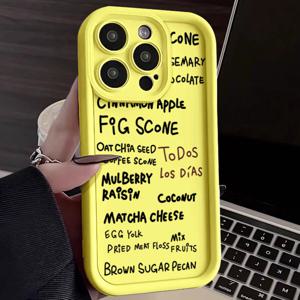 CONE
SEMARY
OCOLATE
CINNAMON APPLE
FIG SCONE
OAT CHIA SEED
COFFEE SCONE
TODOS
LOS DÍAS
MULBERRY
RAISIN
COCONUT
MATCHA CHEESE
EGG YOLK
MIX
DRIED MEAT FLOSS FRUITS
BROWN SUGAR PECAN